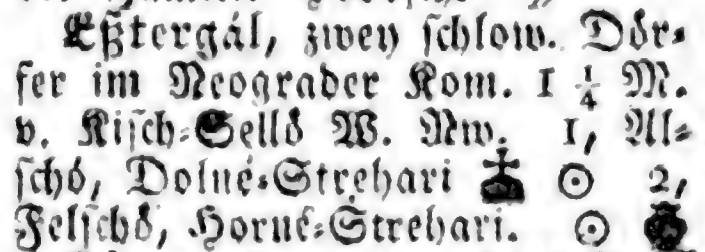 Eßtergál, zwey schlow. Dör-
fer im Neograder Kom. 1 1/4 M.
v. Kisch-Sellö W. Nw. 1, Al-
schó, Dolné-Strehari ⊙ 2,
Felschö, Horné-Strehari. ⊙